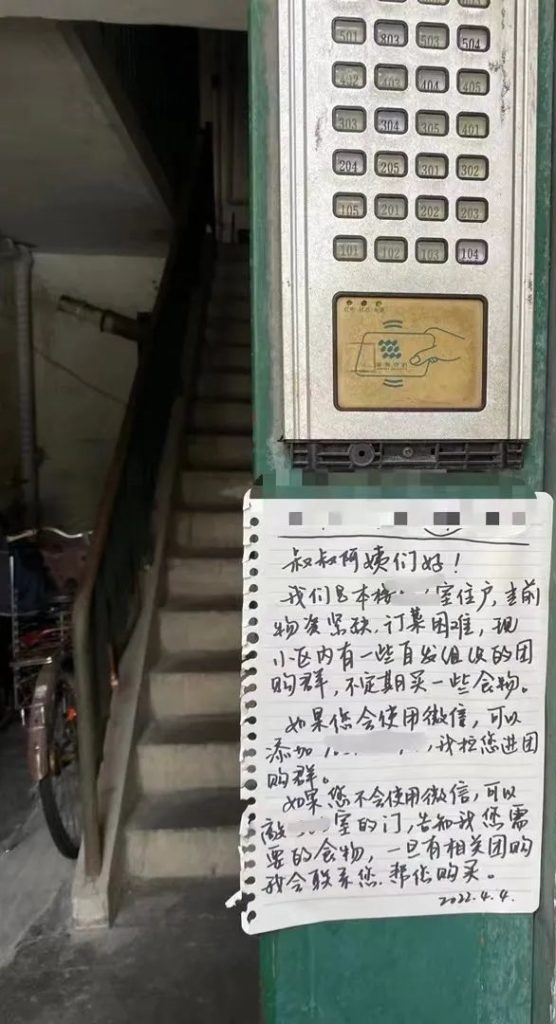 501 303 503 504
402 403 404 405
303 304 305 401
204 205 301 302
105 201 202 203
101 102 103 104
叔叔阿姨们好！
我们是本楼 室住户，当前
物资紧缺，订菜困难，现
小区内有一些自发组织的团
购群，不定期买一些食物。
如果您会使用微信，可以
添加 ，我拉您进团
购群。
如果您不会使用微信，可以
敲 室的门，告知我您需
要的食物，一旦有相关团购
我会联系您，帮您购买。
2022.4.4.